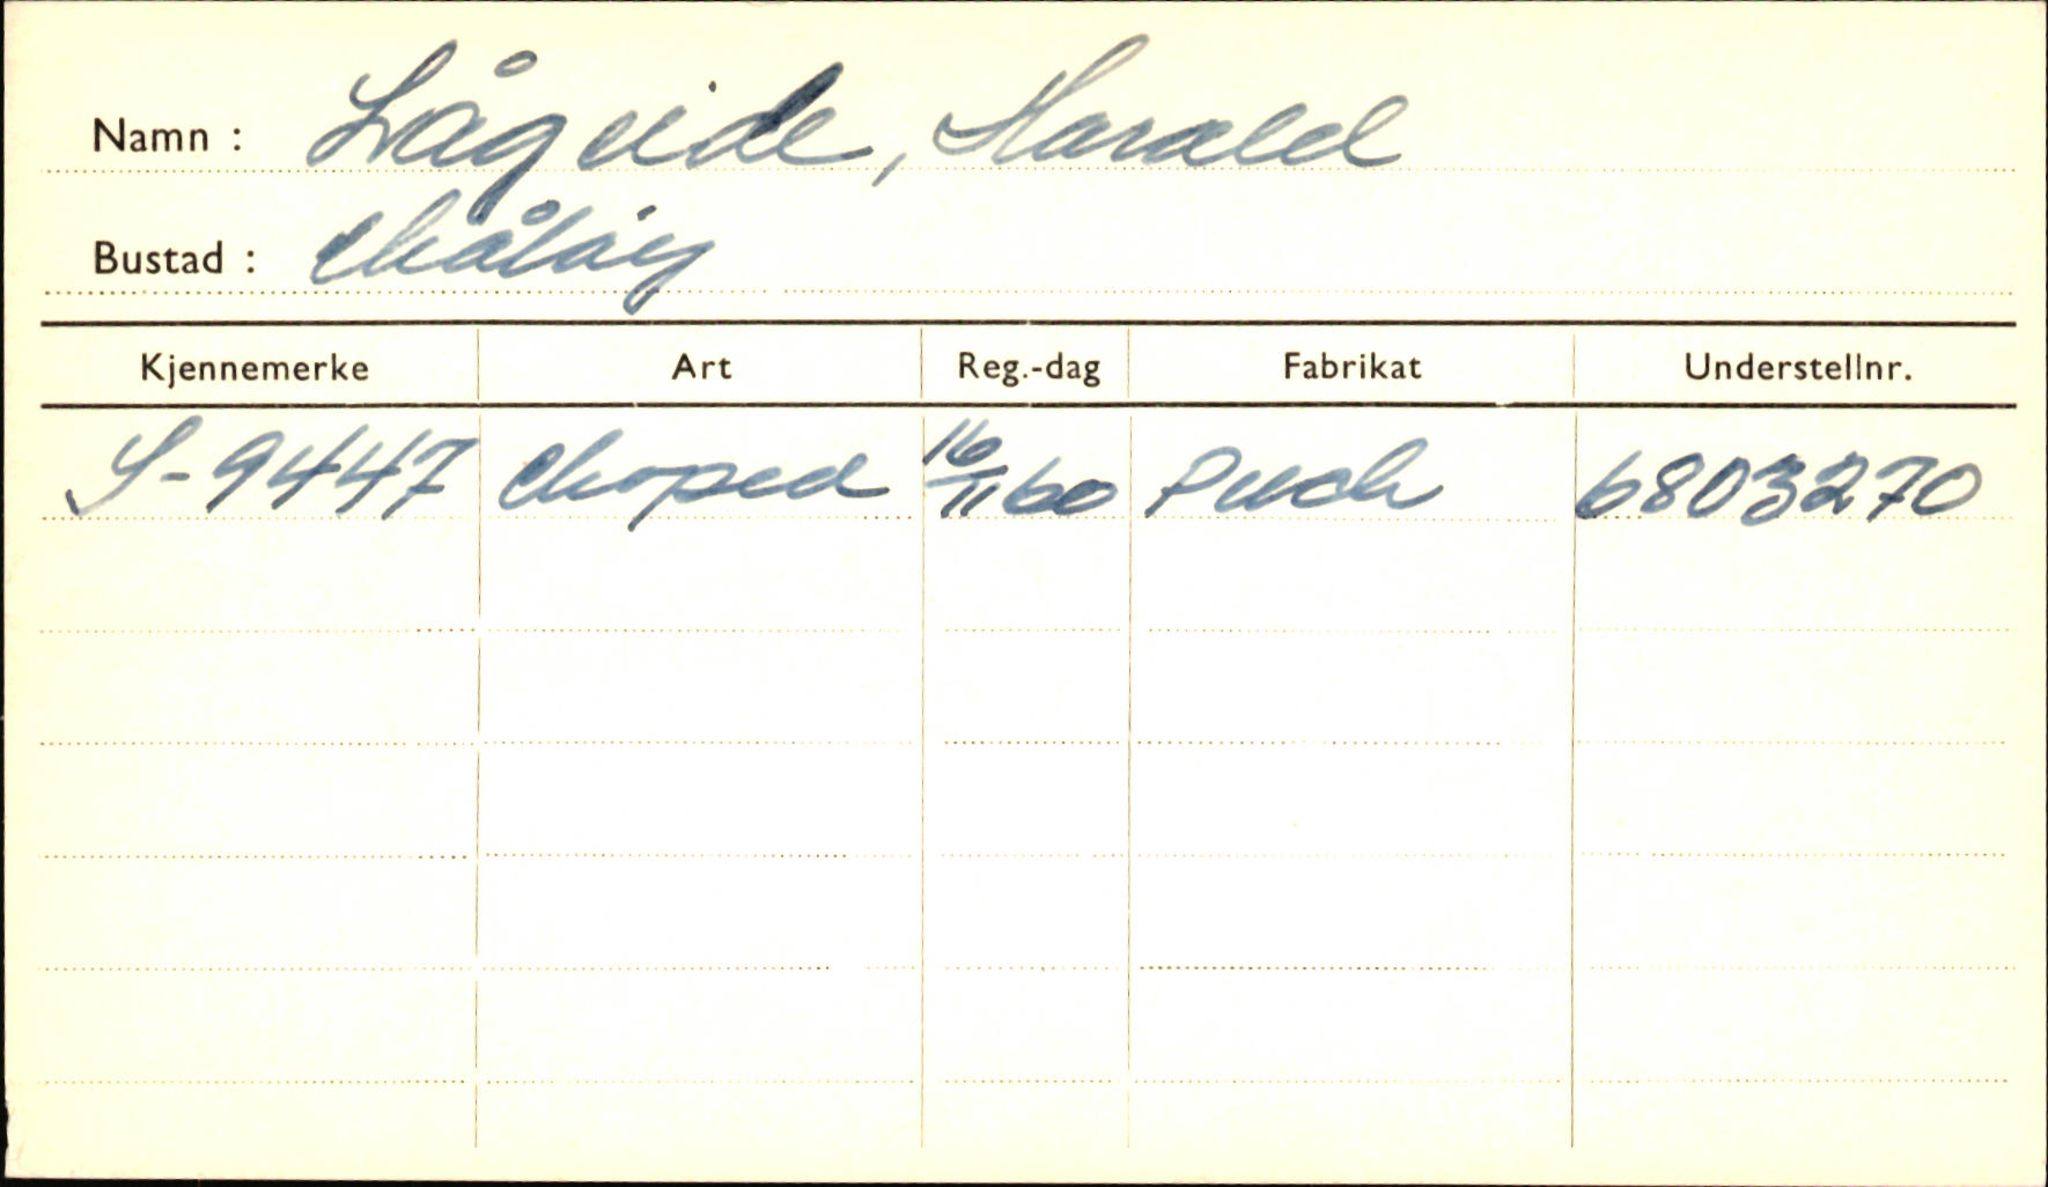 Namn : Lågeide, Harald
Bustad : Måløy
Kjennemerke Art Reg.-dag Fabrikat Understellnr.
S-9447 Moped 16/11 60 Puch 6803270